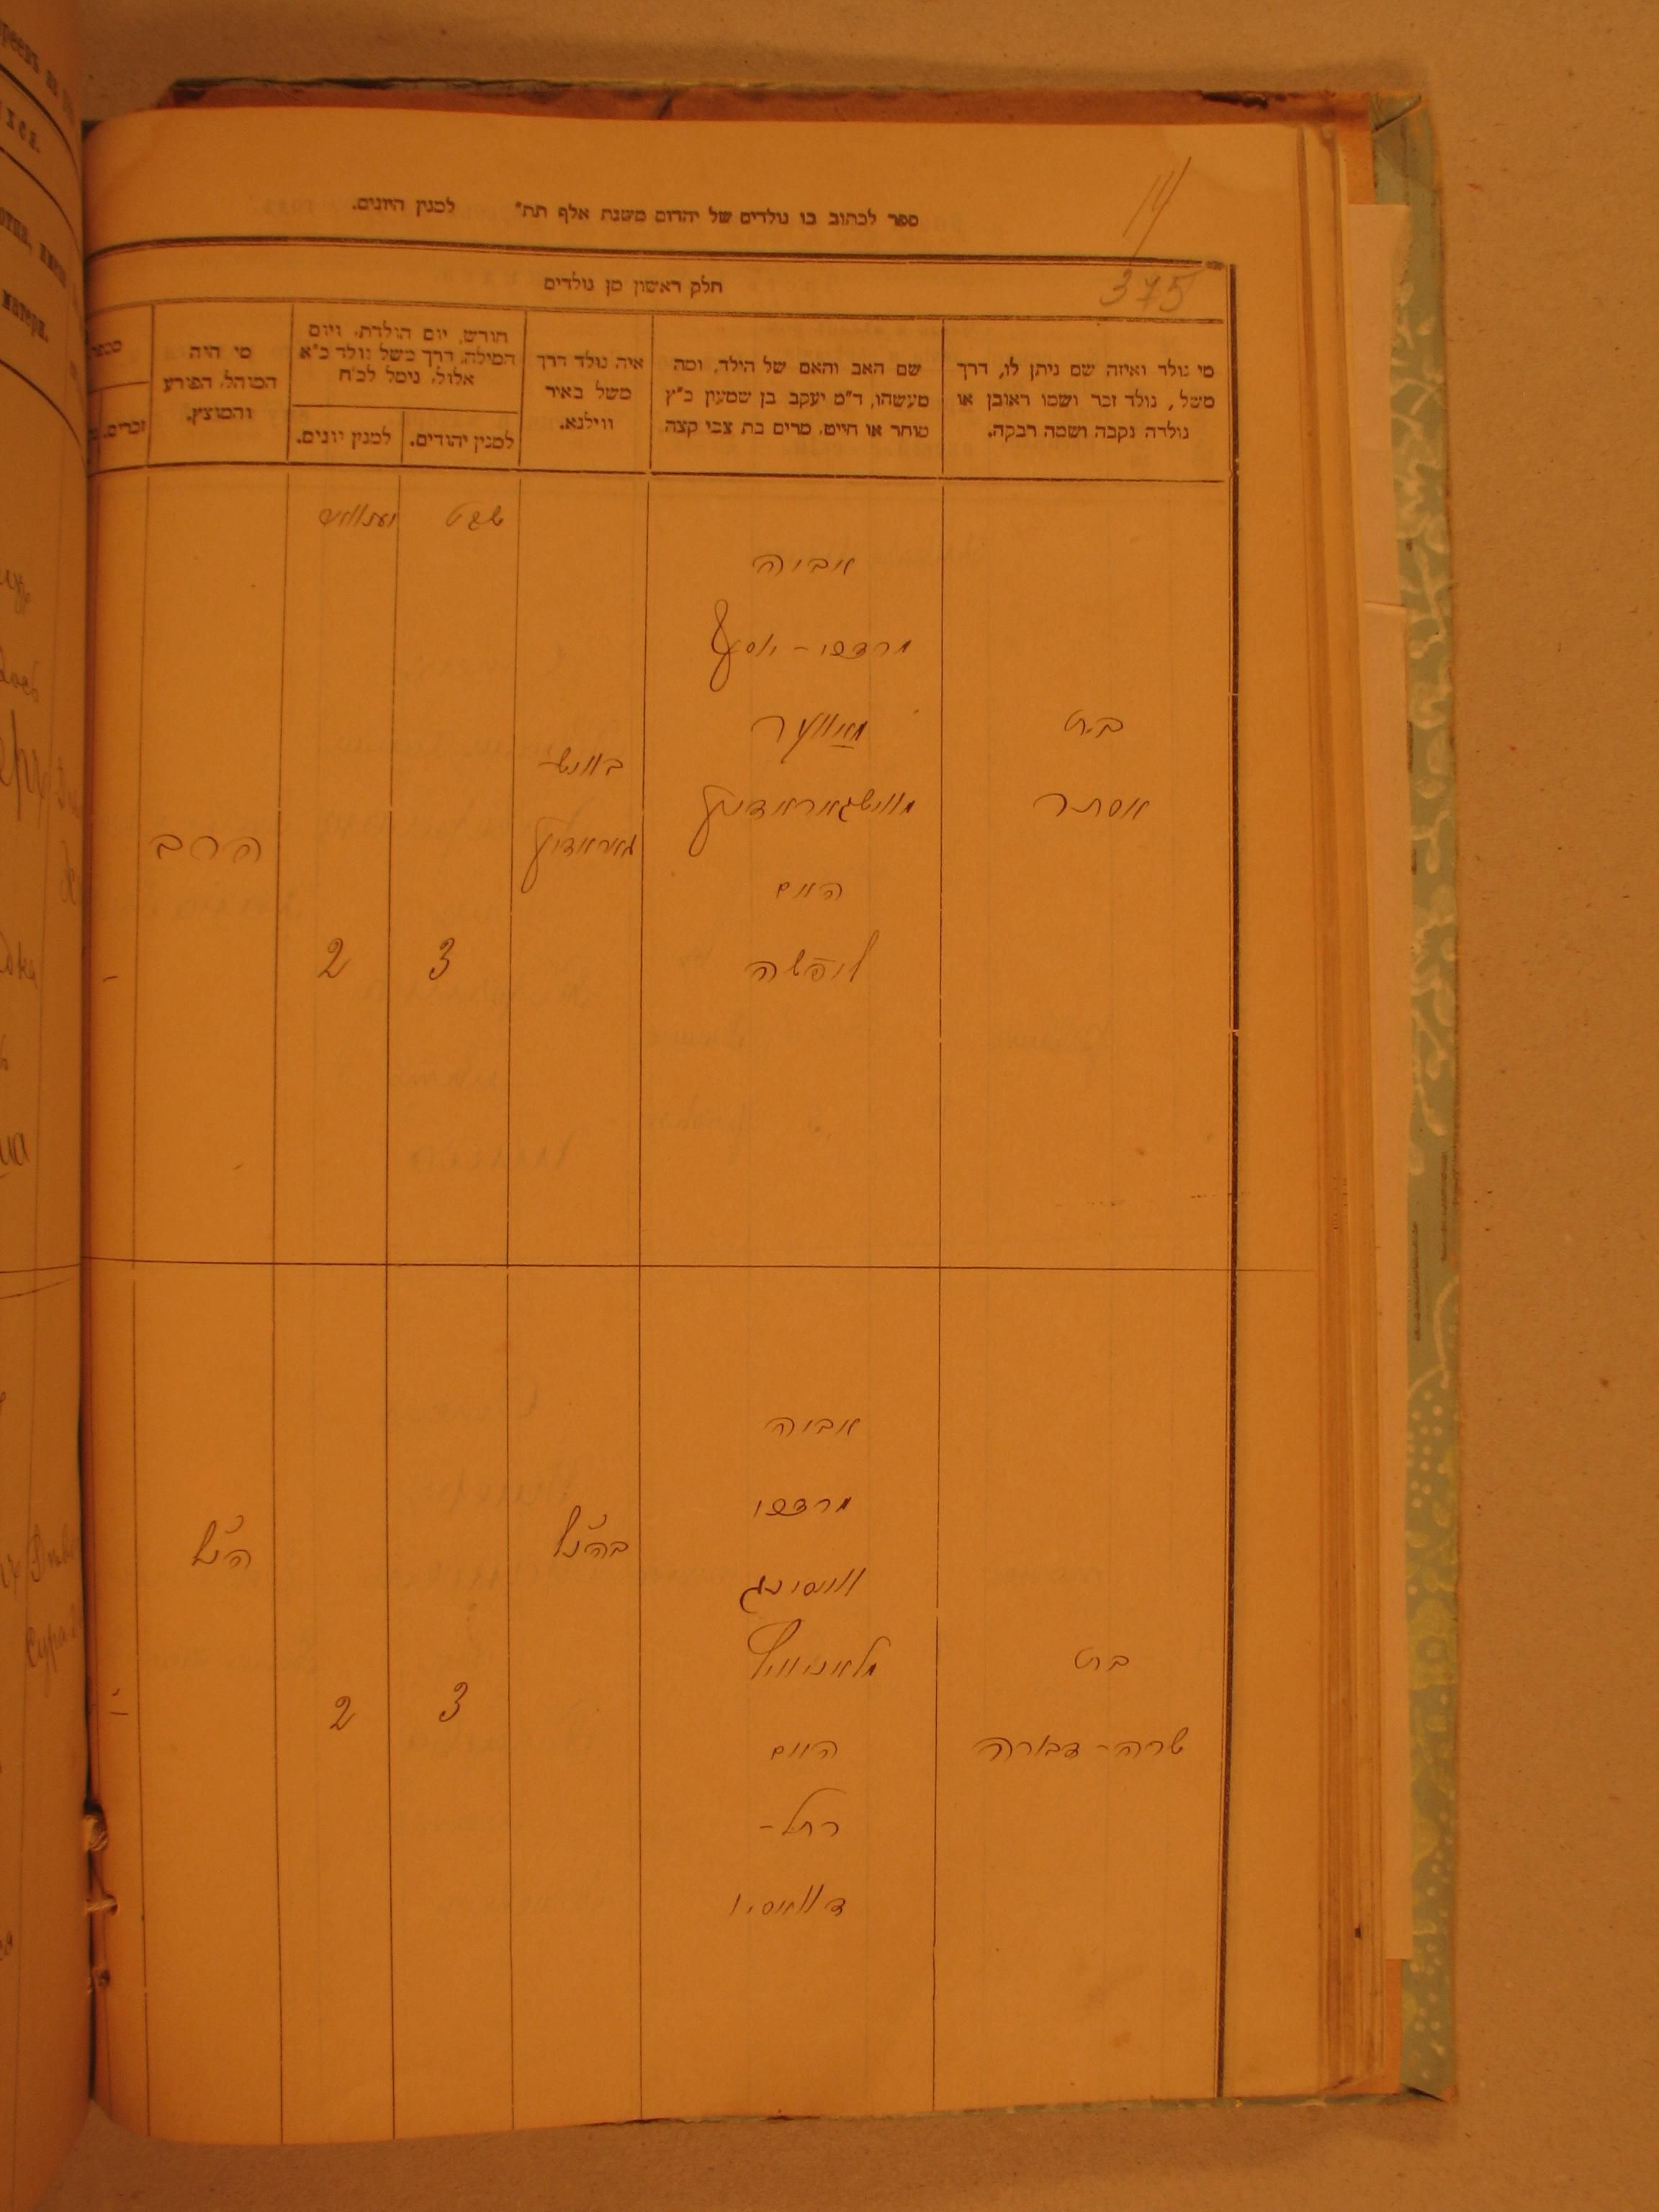 14
375
ספר לכתוב בו נולדים של יהדום משנת אלף תת״ למנין היונים.
חלק ראשון מן נולדים
מי נולד ואיזה שם ניתן לו, דרך
משל, נולד זכר ושמו ראובן או
נולדה נקבה ושמה רבקה.
שם האב והאם של הילד, ומה
מעשהו, ד״מ יעקב בן שמעון כ״ץ
סוחר או חייט, מרים בת צבי קצה
איה נולד דרך
משל באיר
ווילנא.
חודש, יום הולדת, ויום
המילה, דרך משל נולד כ״א
אלול, נימל לכ״ח
למנין יהודים.
למנין יונים.
מי היה
המוהל, הפורע
והמוצץ.
מספר
זכרים.
שבט
אביה
מרדכי - יוסף
בת
אסתר
האם
ליפשה
בווישׁ-
גאראדיק
3
2
הרב
-
אביה
מרדכי
בת
שרה - דבורה
האם
רחל -
בהנ״ל
3
2
הנ״ל